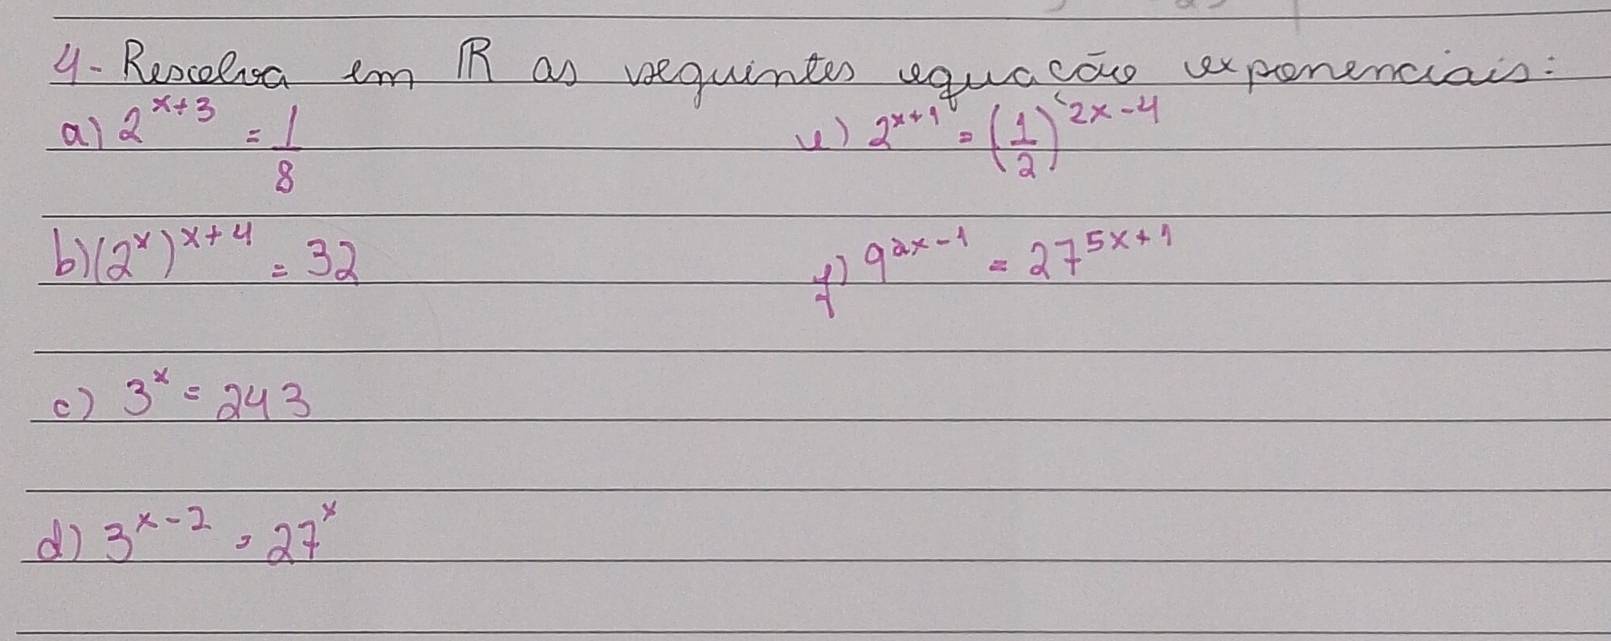 4- Resolva em ℝ as seguintes equação exponenciais:
a) 2^{x+3} = 1/8
e) 2^{x+1} = (1/2)^{2x-4}
b) (2^x)^{x+4} = 32
f) 9^{2x-1} = 27^{5x+1}
c) 3^x = 243
d) 3^{x-2} = 27^x